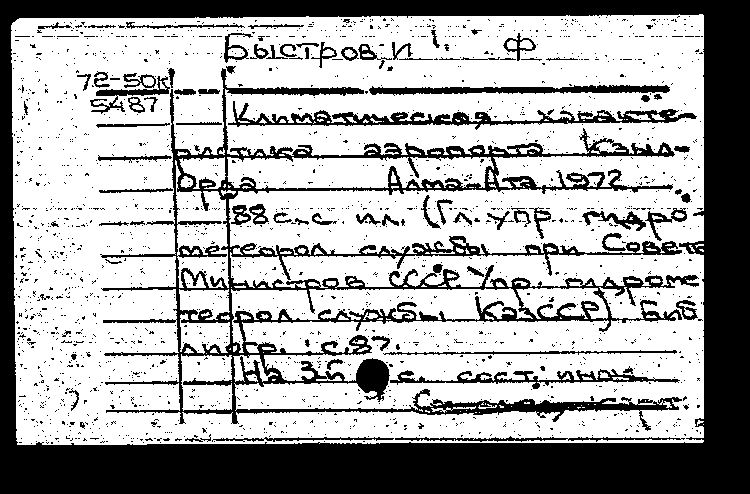 Быстров, И. Ф
72-50к
5487
Климатическая характе-
ристика аэропорта Кзыл-
Орда. Алма-Ата, 1972.
88 с. с ил. (Гл. упр. гидро-
метеорол. службы при Совете
Министров СССР. Упр. гидроме-
теорол. службы КазССР). Биб
лиогр.: с. 87.
На 3-й с. сост.: инж.